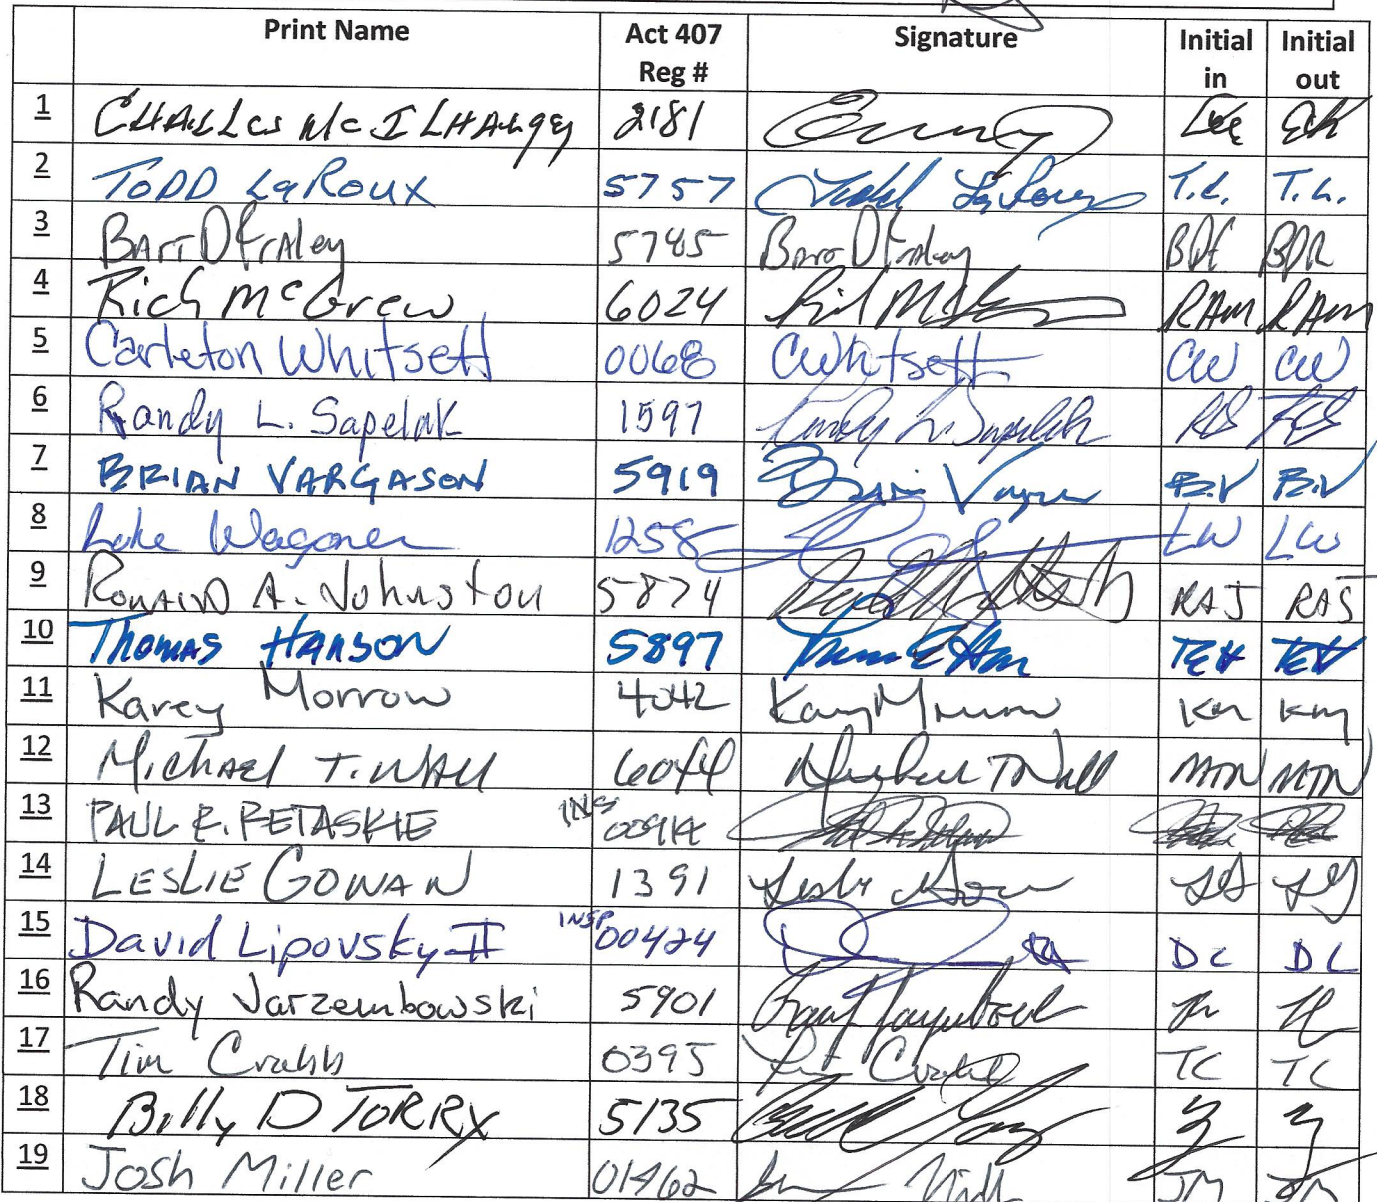 Print Name Act 407 Reg # Signature Initial in Initial out
1 CHARLes McILHArgey 2181
2 TODD LaRoux 5757 Todd LaRoux T.L. T.L.
3 Barr D Fraley 5785 Barr D Fraley BDF BDR
4 Rich McGrew 6024 RAM RAM
5 Carleton Whitsett 0068 CWhitsett CW CW
6 Randy L. Sapelak 1597 Randy L. Sapelak RS
7 BRIAN VARGASON 5919 B.V B.V
8 Luke Wagoner 1258 LW LW
9 Ronald A. Johnston 5874 RAJ RAJ
10 Thomas HANSON 5897 TEH TEH
11 Karey Morrow 4042 Karey Morrow KM KM
12 Michael T. Wall 6044 Michael T Wall MTW MTW
13 PAUL R. PETASKIE INS 00914
14 LESLIE GOWAN 1391 Leslie Gowan LG LG
15 David Lipovsky II INSP 00424 DL DL
16 Randy Jarzembowski 5901
17 Tim Crabb 0395 Tim Crabb TC TC
18 Billy D TORRY 5135
19 Josh Miller 01462 JM JM